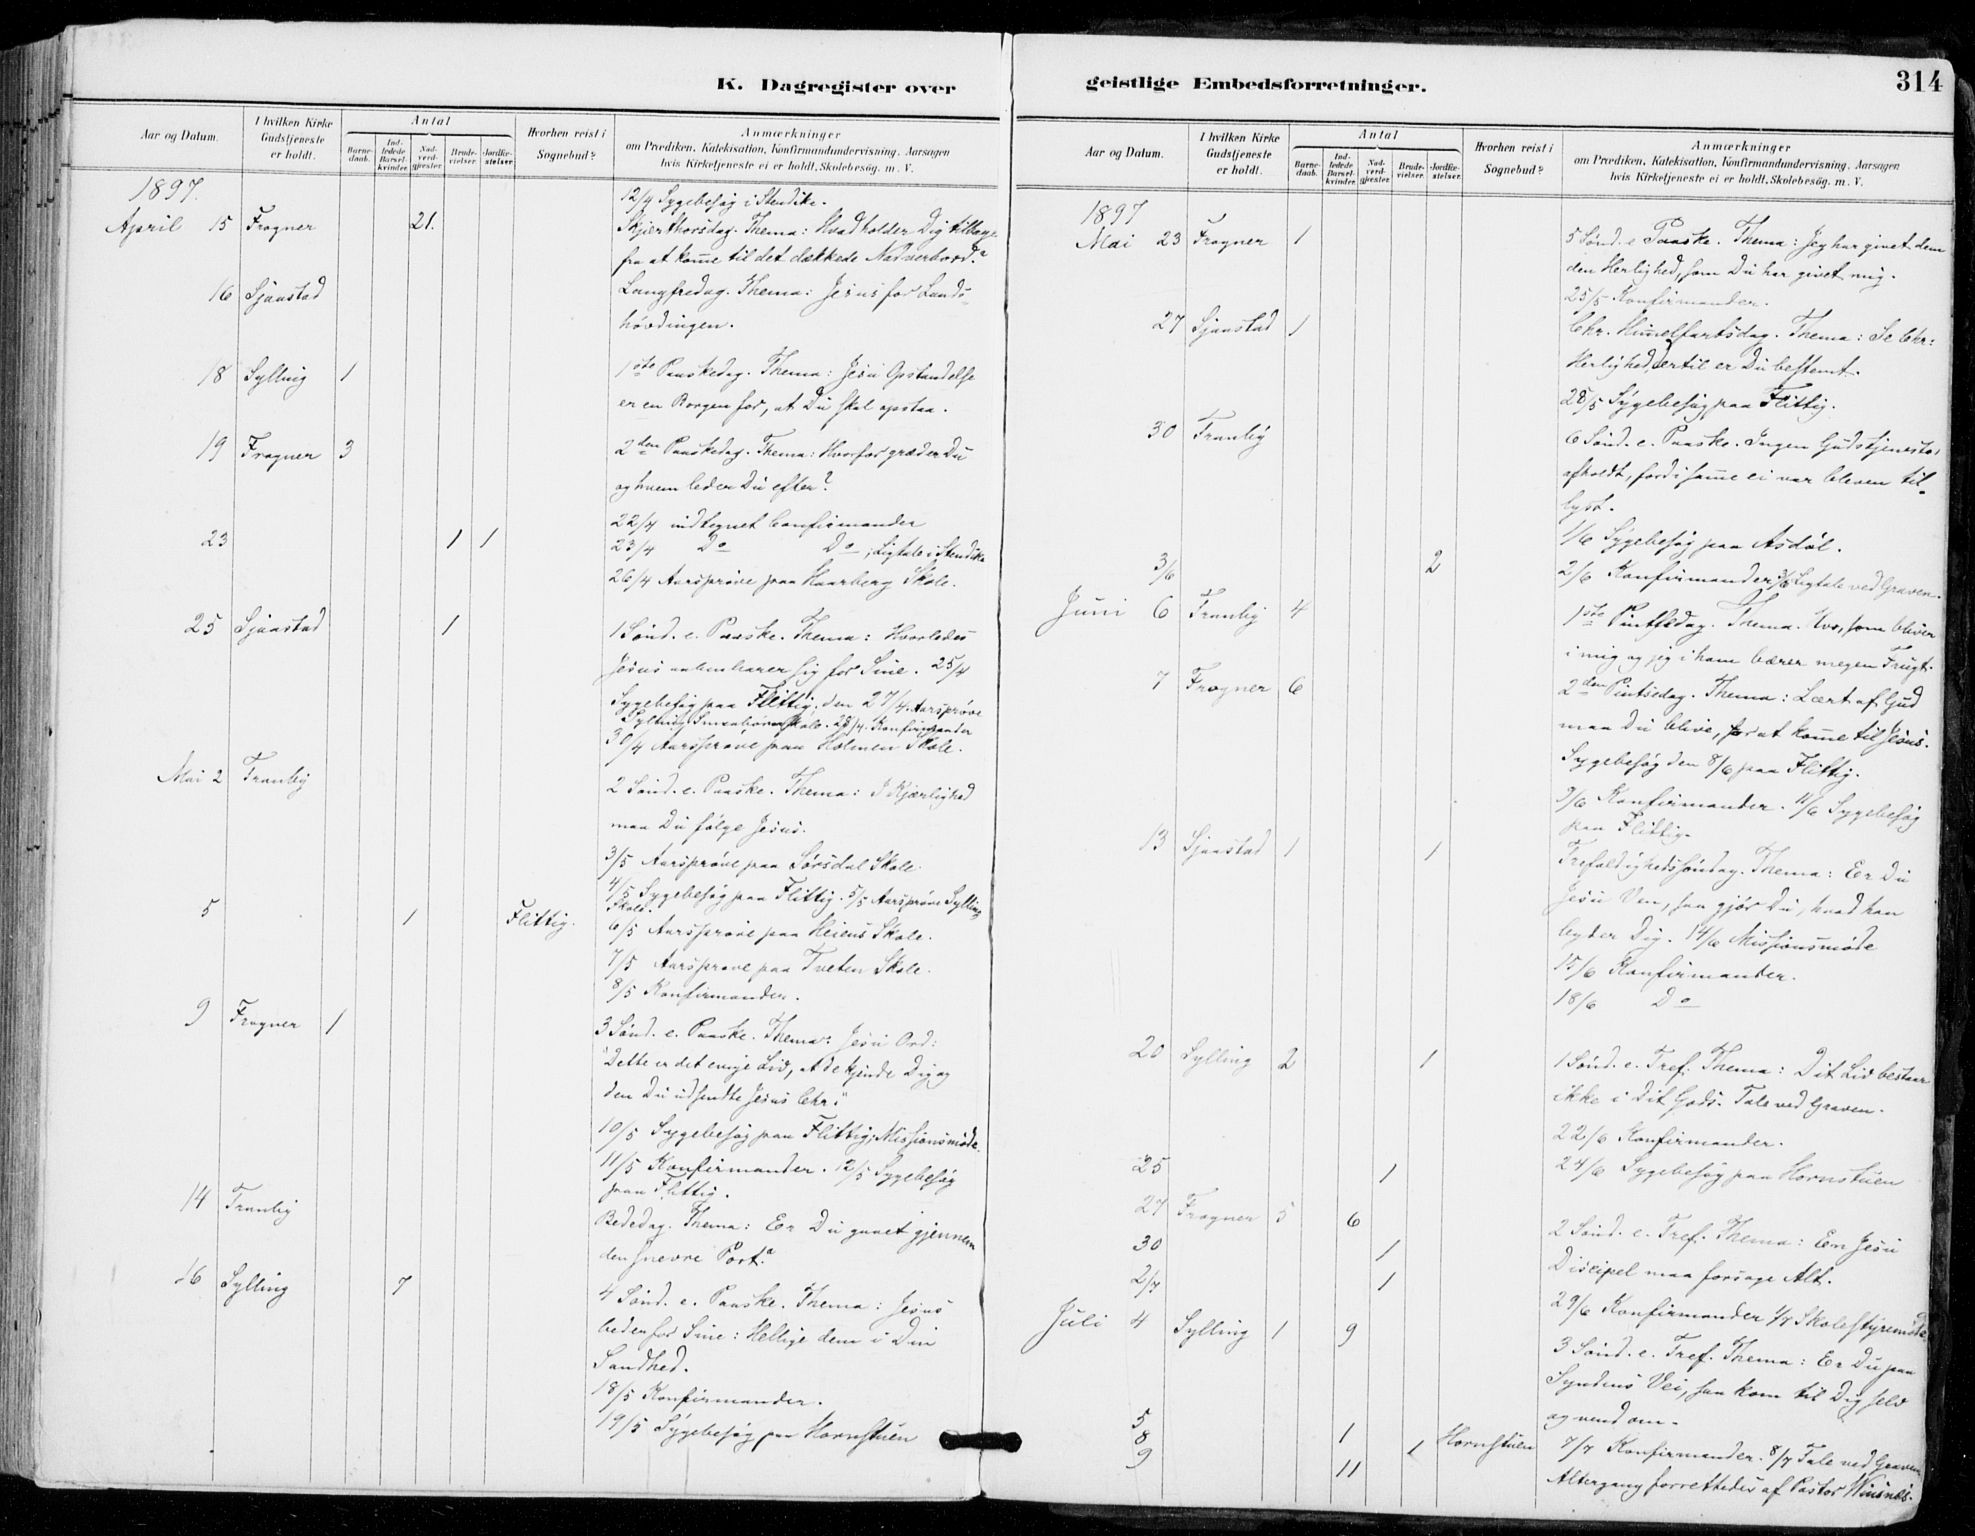 K. Dagregister over
Aar og Datum.
I hvilken Kirke Gudstjeneste er holdt.
Antal
Barne-daab.
Ind-ledede Barsel-kvinder.
Nad-verd-gjester.
Brude-vielser.
Jordfæ-stelser.
Hvorhen reist i Sognebud?
Anmærkninger
om Prædiken, Katekisation, Konfirmandundervisning, Aarsagen
hvis Kirketjeneste ei er holdt, Skolebesøg. m. V.
1897.
12/4 Sygebesøg i Stendike.
April 15 Frogner 21. Skjærthorsdag. Thema: Hvad holder Dig tilbage
fra at komme til det dækkede Nadverbord?
16 Sjaastad Langfredag. Thema: Jesus for Lands-
hövdingen.
18 Sylling 1 1ste Paaskedag. Thema: Jesu Opstandelse
er en Borgen for, at Du skal opstaa.
19 Frogner 3 2den Paaskedag. Thema: Hvorfor græder Du
og hvem leder Du efter?
22/4 indtegnet Confirmander
23 1 1 23/4 Do Do; Ligtale i Stendike
26/4 Aarsprøve paa Haarberg Skole.
25 Sjaastad 1 1 Sønd. e. Paaske. Thema: Hvorledes
Jesus aabenbarer sig for Sine. 25/4
Sygebesøg paa Flittig; den 27/4 Aarsprøve
Sylling Skole. 28/4 Konfirmander
30/4 Aarsprøve paa Holmen Skole.
Mai 2 Tranby 2 Sønd. e. Paaske. Thema: I Kjærlighed
maa Du følge Jesus.
3/5 Aarsprøve paa Sørsdal Skole.
4/5 Sygebesøg paa Flittig. 5/5 Aarsprøve Sylling
Skole.
5 1 Flittig. 6/5 Aarsprøve paa Heiens Skole.
7/5 Aarsprøve paa Tveten Skole.
8/5 Konfirmander.
9 Frogner 1 3 Sønd. e. Paaske. Thema: Jesu Ord:
"Dette er det evige Liv, at de kjende Dig og
den Du udsendte Jesus Chr."
10/5 Sygebesøg paa Flittig; Missionsmøde.
11/5 Konfirmander. 12/5 Sygebesøg
paa Flittig.
14 Tranby Bededag. Thema: Er Du gaaet gjennem
den snevre Port?
16 Sylling 7 4 Sønd. e. Paaske. Thema: Jesus
beder for Sine: Hellige dem i Din
Sandhed.
18/5 Konfirmander.
19/5 Sygebesøg paa Hornstuen
geistlige Embedsforretninger.
314
Aar og Datum.
I hvilken Kirke Gudstjeneste er holdt.
Antal
Barne-daab.
Ind-ledede Barsel-kvinder.
Nad-verd-gjester.
Brude-vielser.
Jordfæ-stelser.
Hvorhen reist i Sognebud?
Anmærkninger
om Prædiken, Katekisation, Konfirmandundervisning, Aarsagen
hvis Kirketjeneste ei er holdt, Skolebesøg. m. V.
1897
Mai 23 Frogner 1 5 Sønd. e. Paaske. Thema: Jeg har givet dem
den Herlighed, som Du har givet mig.
25/5 Konfirmander.
27 Sjaastad 1 Chr. Himelfartsdag. Thema: Se Chr:
Herlighed, dertil er Du bestemt.
28/5 Sygebesøg paa Flittig.
30 Tranby 6 Sønd. e. Paaske. Ingen Gudstjeneste
afholdt, fordi samme ei var bleven til-
lyst.
1/6 Sygebesøg paa Asdøl.
3/6 2 2/6 Konfirmander 3/6 Ligtale ved Graven.
Juni 6 Tranby 4 1ste Pintsedag. Thema. Hvo, som bliver
i mig og jeg i ham bærer megen Frugt.
7 Frogner 6 2den Pintsedag. Thema: Lært af Gud
maa Du blive, for at komme til Jesus.
Sygebesøg den 8/6 paa Flittig.
9/6 Konfirmander. 11/6 Sygebesøg
paa Flittig.
13 Sjaastad 1 1 Trefoldighedssøndag. Thema: Er Du
Jesu Ven, saa gjør Du, hvad han
byder Dig. 14/6 Missionsmøde
15/6 Konfirmander.
18/6 Do
20 Sylling 2 1 1 Sønd. e. Tref. Thema: Dit Liv bestaar
ikke i Dit Gods. Tale ved Graven.
22/6 Konfirmander.
25 1 24/6 Sygebesøg paa Hornstuen
27 Frogner 5 6 2 Sønd. e. Tref. Thema: En Jesu
30 1
Discipel maa forsage Alt.
2/7 1
29/6 Konfirmander 1/7 Skolestyremøde
Juli 4 Sylling 1 9 3 Sønd. e. Tref. Thema: Er Du paa
Syndens Vei, saa kom til Dig selv
og vend om.
5 1
8 1 Hornstuen 7/7 Konfirmander. 8/7 Tale ved Graven
9 11 Altergang forrettedes af Pastor Winsnes.